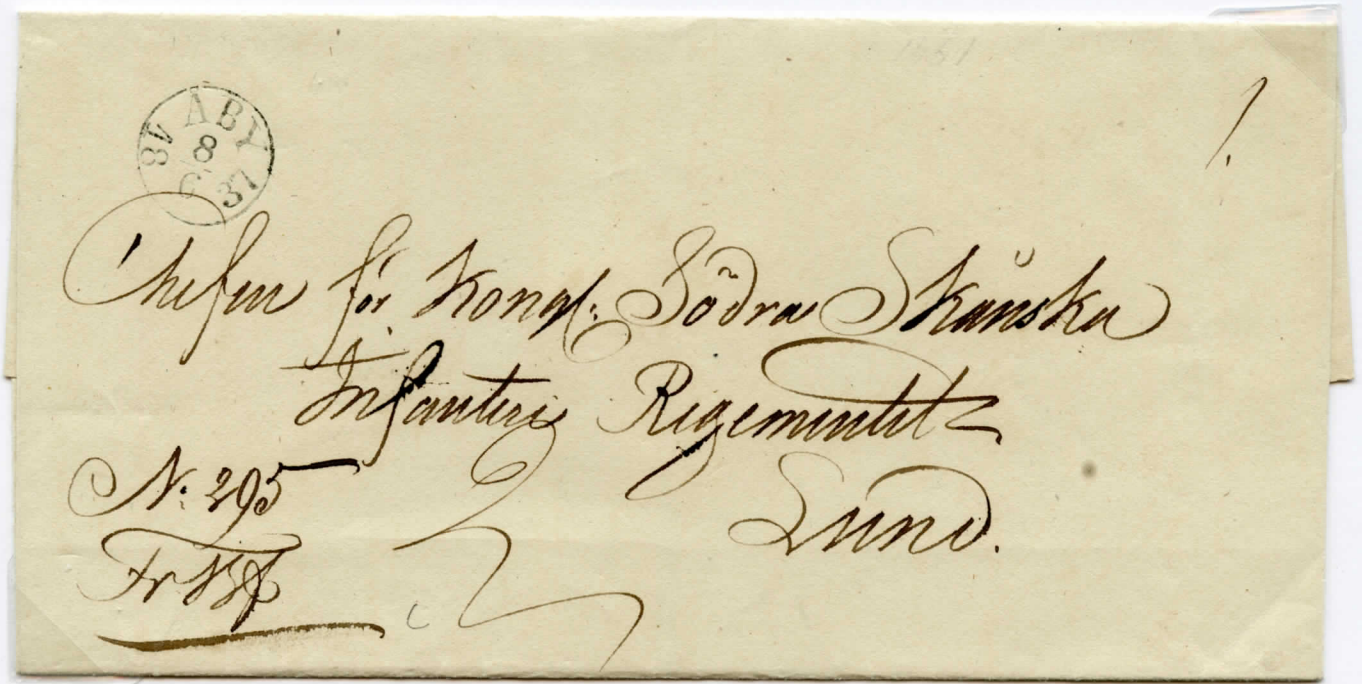 1.
ÅBY
8
6
18 37
Chefen för Kongl. Södra Skånska
Infanteri Regementet
Lund.
N: 295
Fr